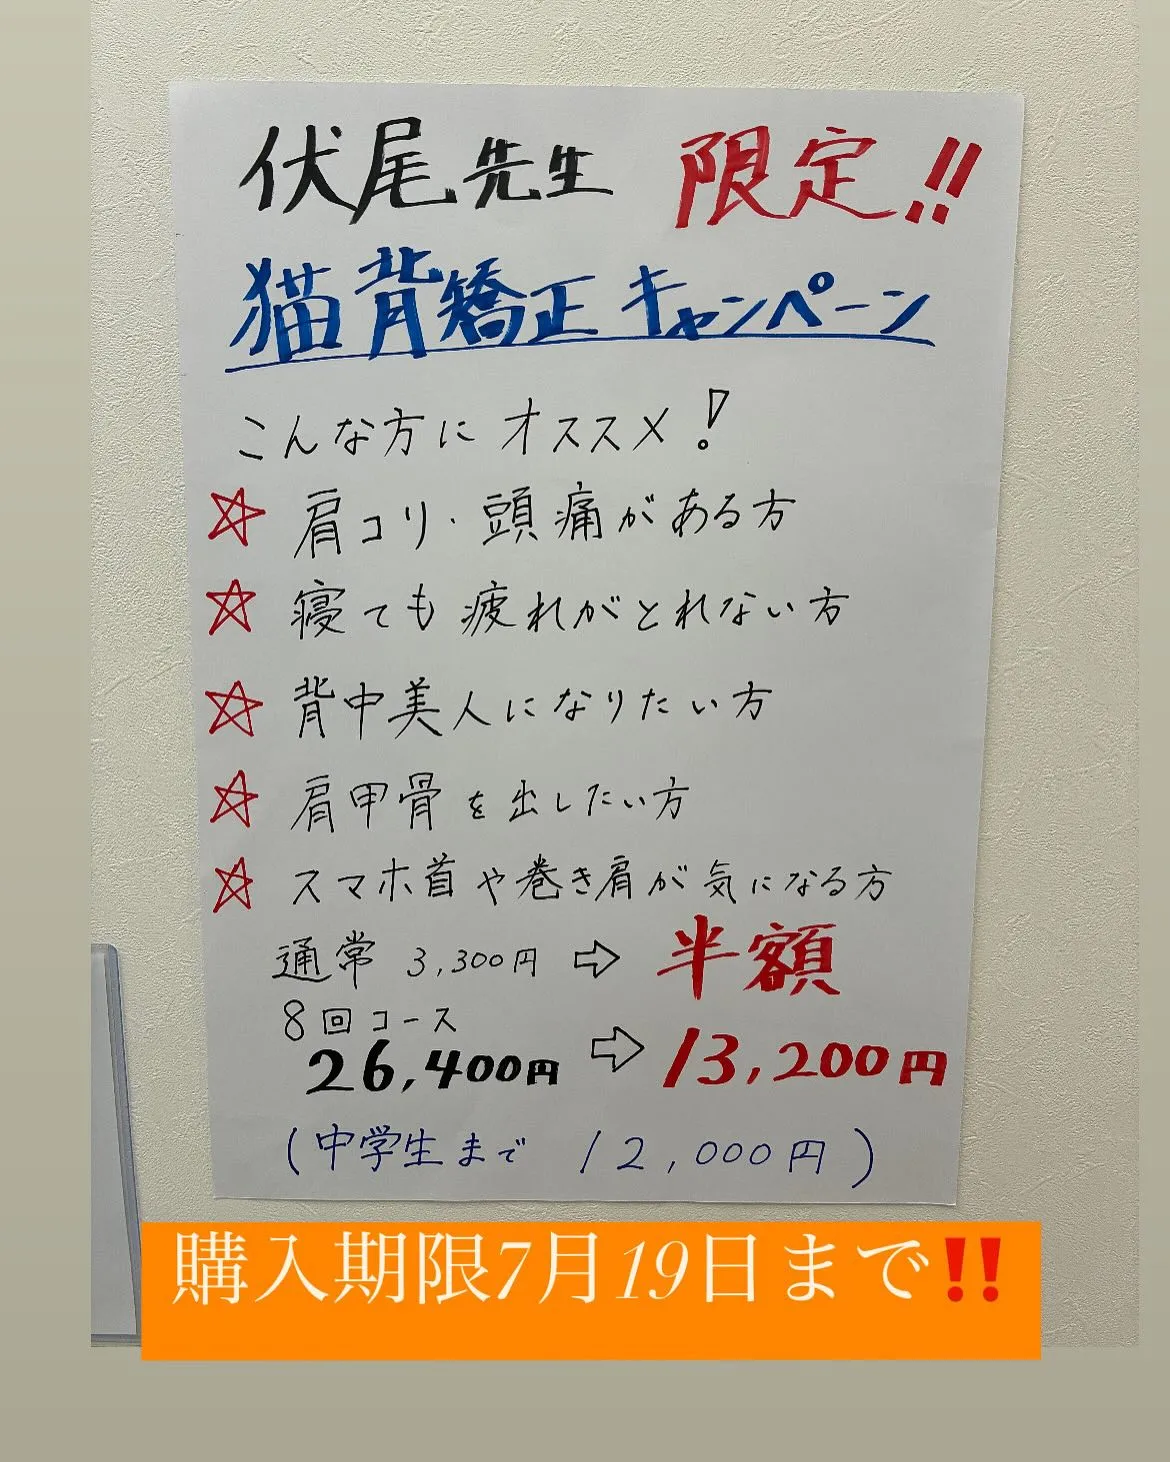 伏尾先生 限定!!
猫背矯正キャンペーン
こんな方にオススメ!
☆ 肩コリ・頭痛がある方
☆ 寝ても疲れがとれない方
☆ 背中美人になりたい方
☆ 肩甲骨を出したい方
☆ スマホ首や巻き肩が気になる方
通常 3,300円 ⇨ 半額
8回コース
26,400円 ⇨ 13,200円
(中学生まで 12,000円)
購入期限7月19日まで‼️